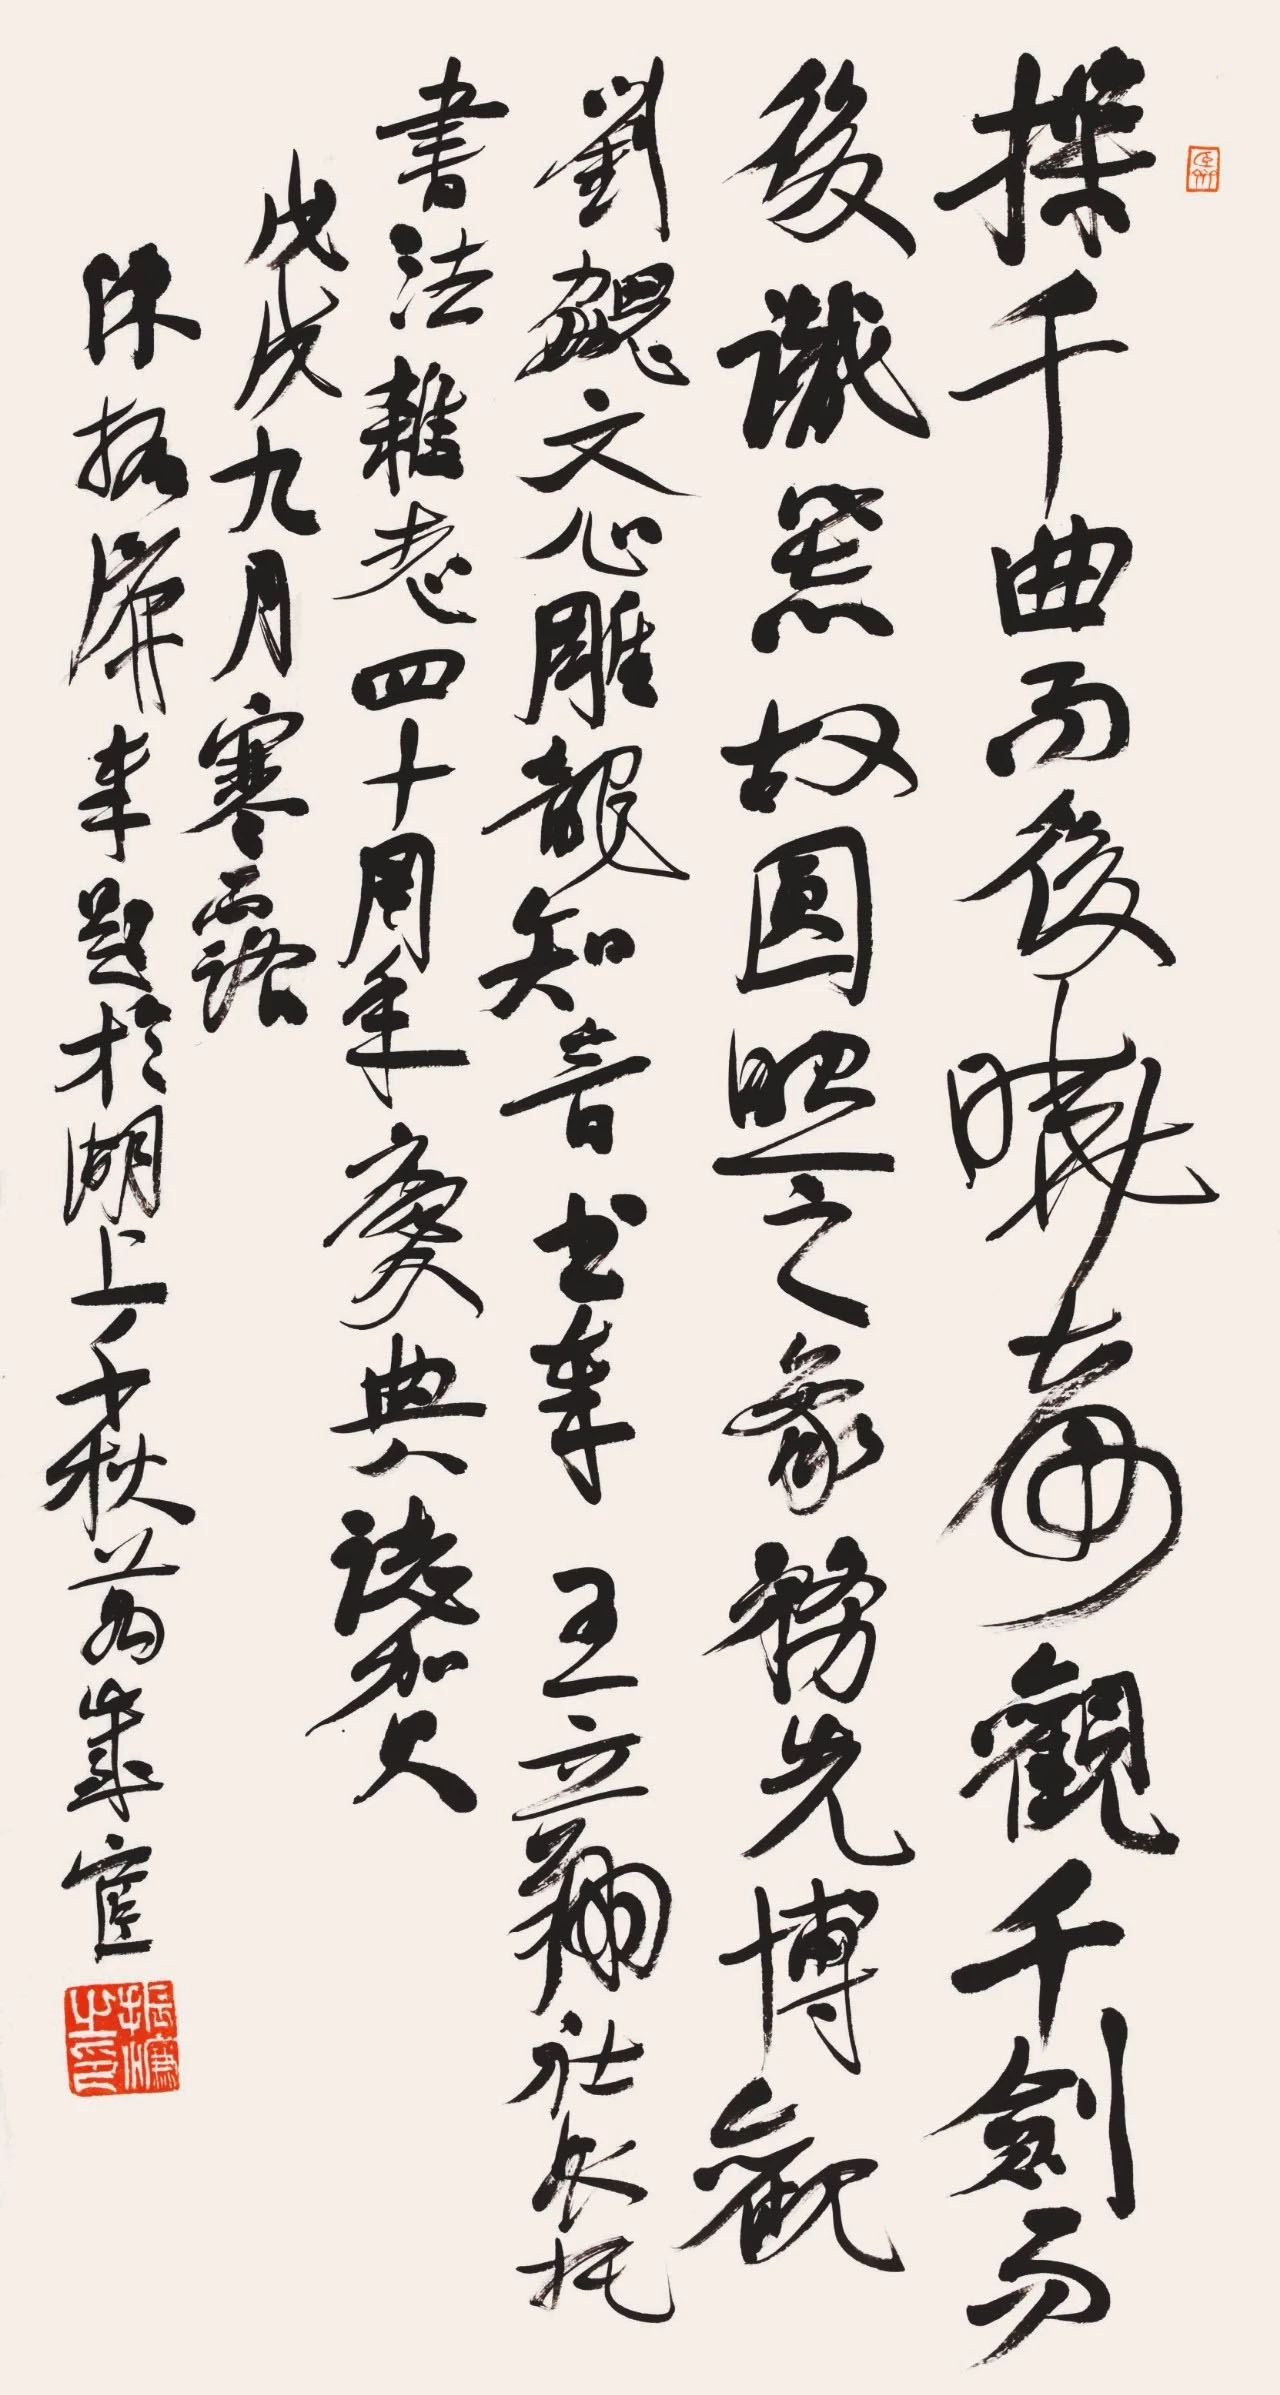 操千曲而後曉聲觀千劍而
後識器故圓照之象務先博觀
劉勰文心雕龍知音書奉 王立翔社長托
書法雜志四十周年慶典 賀
戊戌九月寒露
陳振濂奉題於湖上千秋萬歲宦
振濂之印